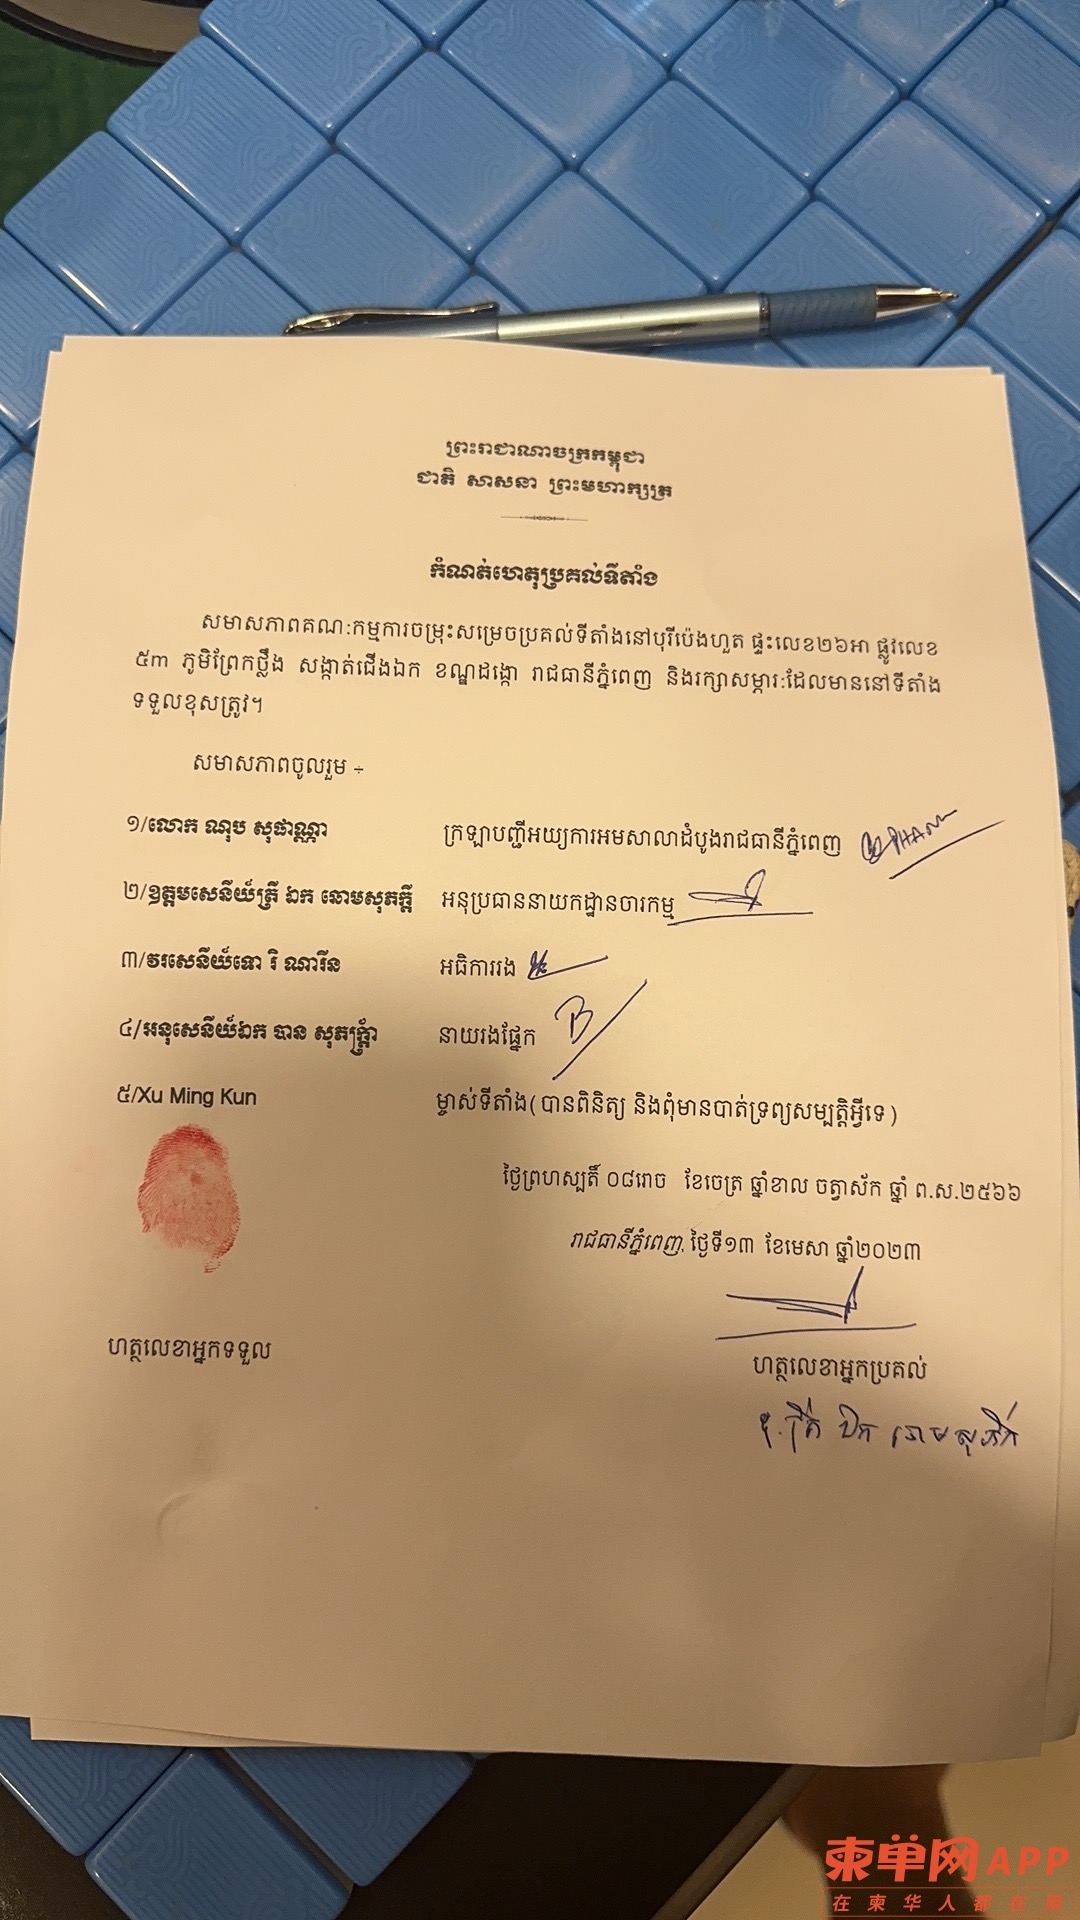 ព្រះរាជាណាចក្រកម្ពុជា
ជាតិ សាសនា ព្រះមហាក្សត្រ
កំណត់ហេតុប្រគល់ទីតាំង
សមាសភាពគណៈកម្មការចម្រុះសម្រេចប្រគល់ទីតាំងនៅបុរីប៉េងហួត ផ្ទះលេខ២៦អា ផ្លូវលេខ
៥m ភូមិព្រែកថ្លឹង សង្កាត់ជើងឯក ខណ្ឌដង្កោ រាជធានីភ្នំពេញ និងរក្សាសម្ភារៈដែលមាននៅទីតាំង
ទទួលខុសត្រូវ។
សមាសភាពចូលរួម ÷
១/លោក ណុប សុផាណ្ណា ក្រឡាបញ្ជីអយ្យការអមសាលាដំបូងរាជធានីភ្នំពេញ
២/ឧត្តមសេនីយ៍ត្រី ឯក ឆោមសុភក្តី អនុប្រធាននាយកដ្ឋានចារកម្ម
៣/វរសេនីយ៍ទោ រិ ណារីន អធិការរង
៤/អនុសេនីយ៍ឯក បាន សុភក្ត្រ័ា នាយរងផ្នែក
៥/Xu Ming Kun ម្ចាស់ទីតាំង(បានពិនិត្យ និងពុំមានបាត់ទ្រព្យសម្បត្តិអ្វីទេ)
ថ្ងៃព្រហស្បតិ៍ ០៨រោច ខែចេត្រ ឆ្នាំខាល ចត្វាស័ក ឆ្នាំ ព.ស.២៥៦៦
រាជធានីភ្នំពេញ, ថ្ងៃទី១៣ ខែមេសា ឆ្នាំ២០២៣
ហត្ថលេខាអ្នកទទួល ហត្ថលេខាអ្នកប្រគល់
ឯក ឆោមសុភក្តី
柬单网APP
在柬华人都在用